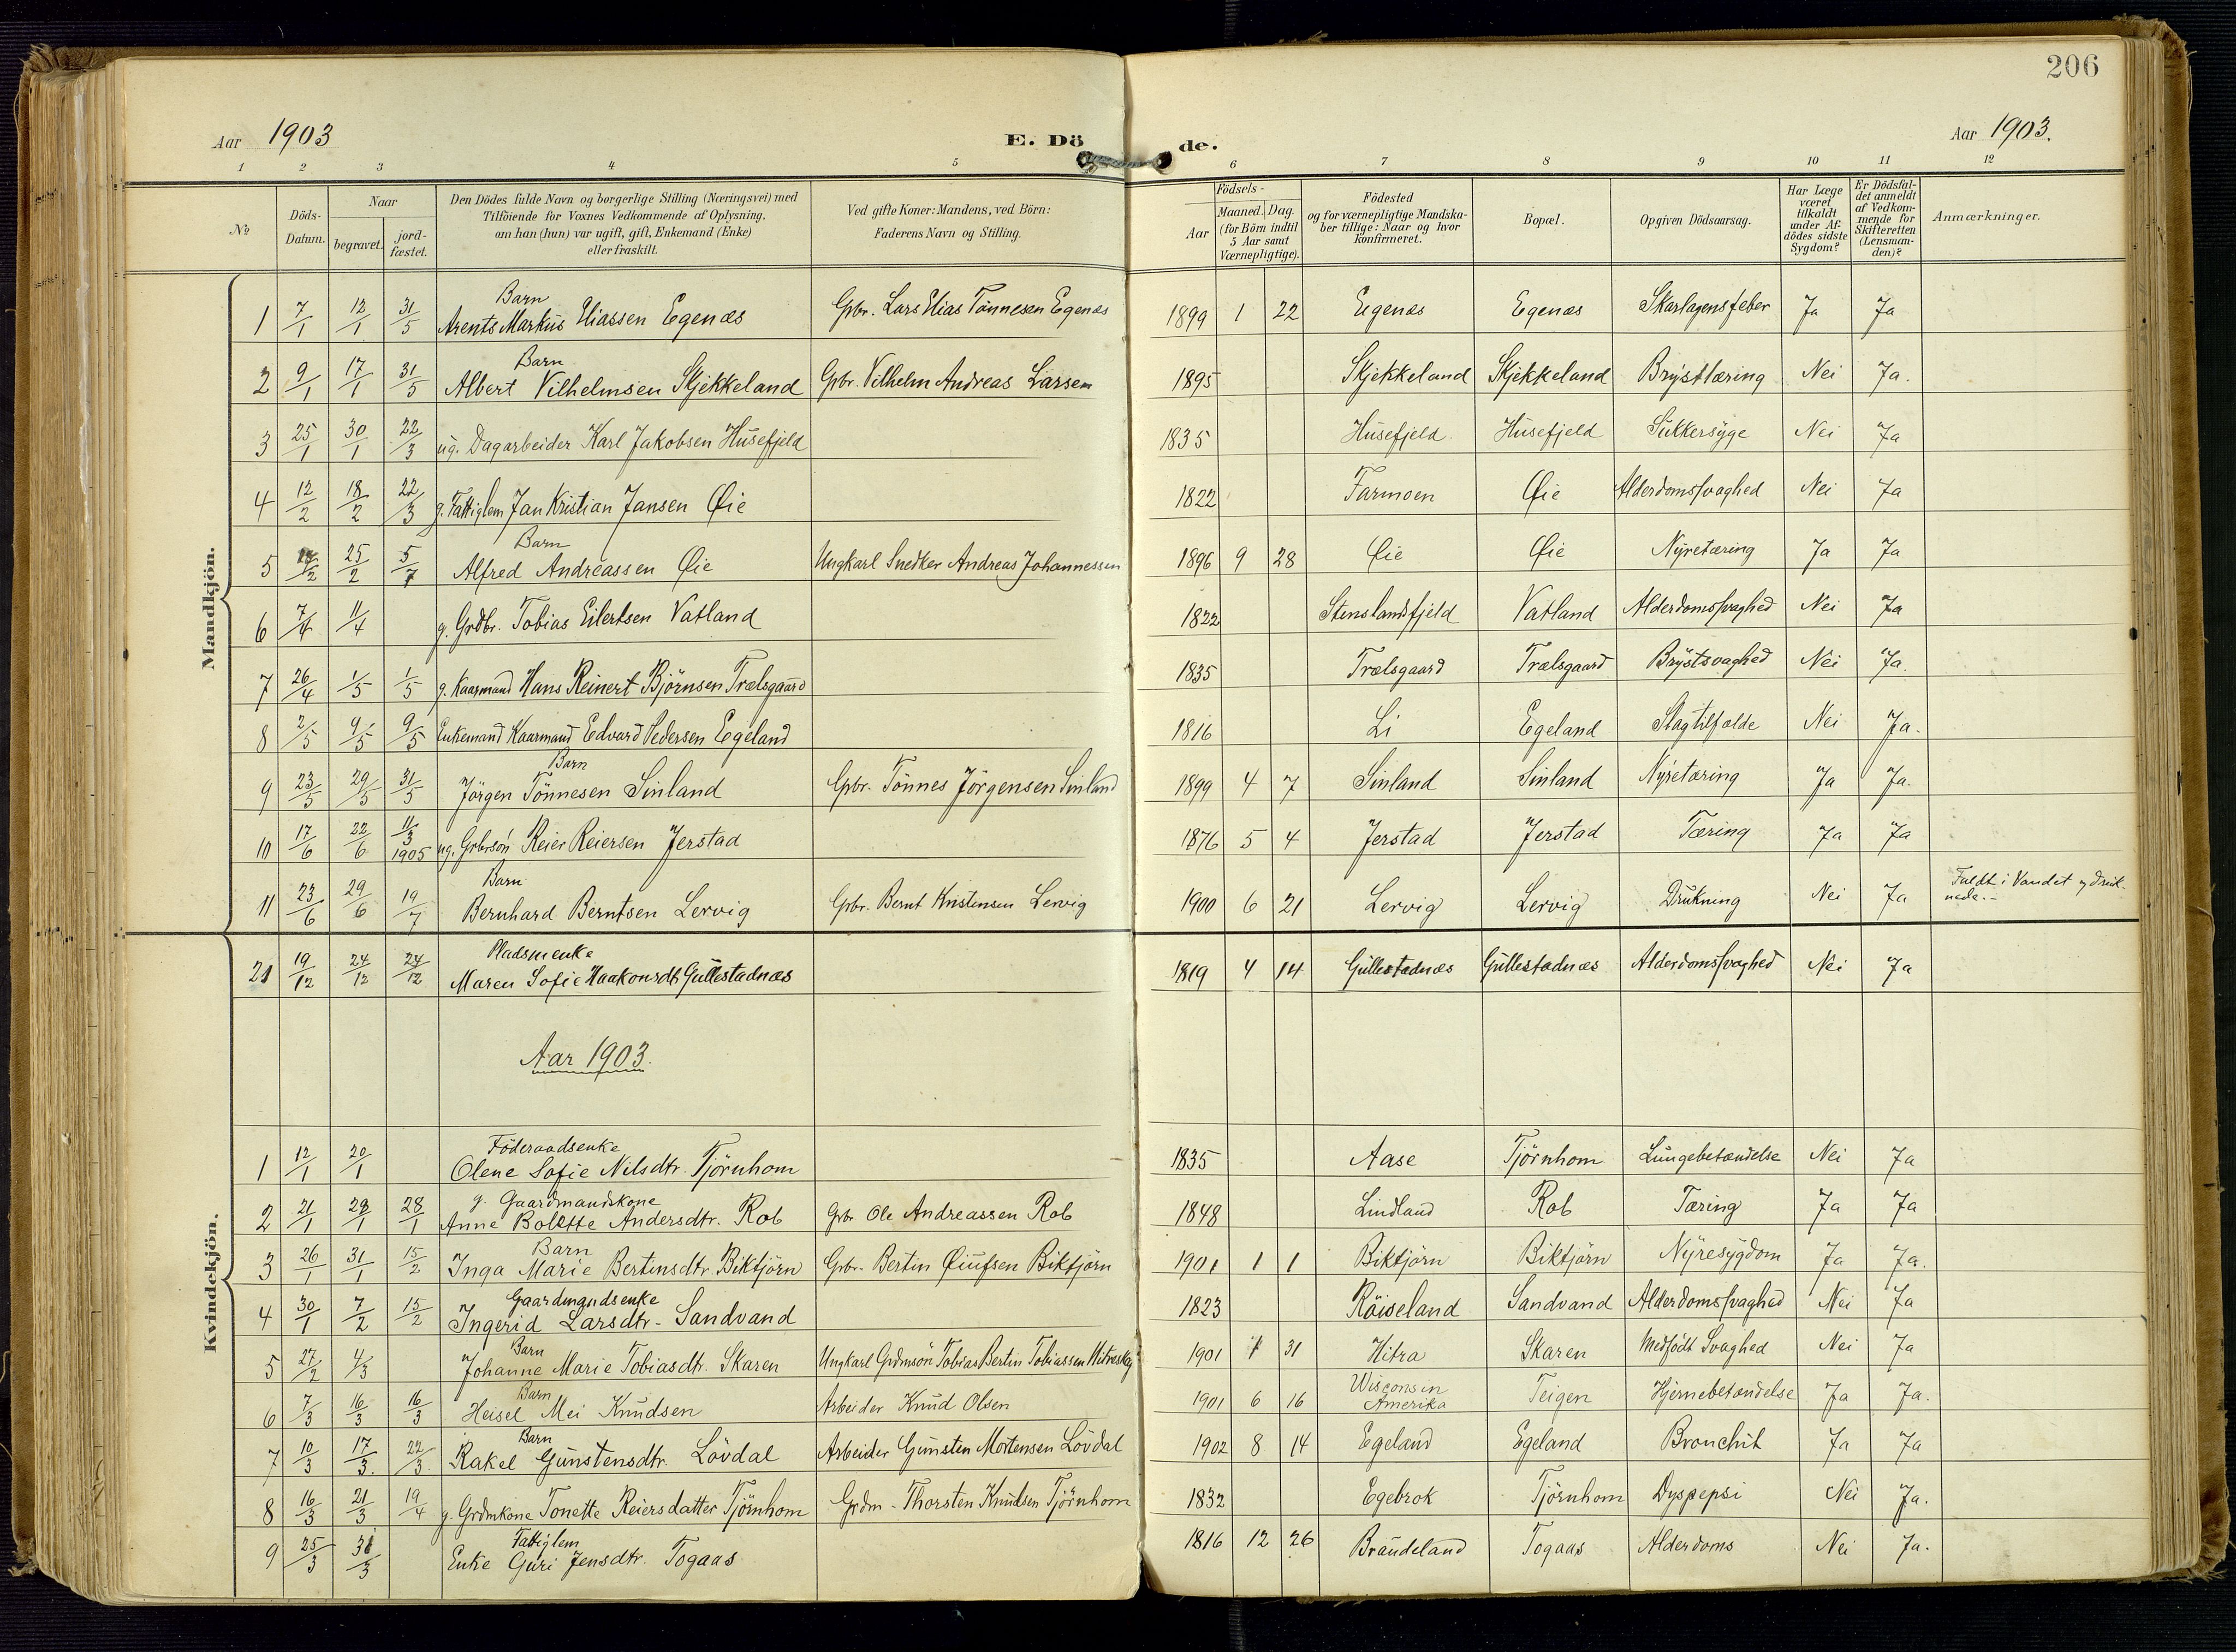 206
Aar 1903
E. Dö de.
Aar 1903.
1 2 3 4 5 6 7 8 9 10 11 12
№
Döds-Datum.
Naar
begravet.
jord-fæstet.
Den Dödes fulde Navn og borgerlige Stilling (Næringsvei) med
Tilföiende for Voxnes Vedkommende af Oplysning,
om han (hun) var ugift, gift, Enkemand (Enke)
eller fraskilt.
Ved gifte Koner: Mandens, ved Börn:
Faderens Navn og Stilling.
Födsels-
Aar
Maaned. Dag.
(for Börn indtil
5 Aar samt
Værnepligtige).
Födested
og for værnepligtige Mandska-
ber tillige: Naar og hvor
konfirmeret.
Bopæl.
Opgiven Dödsaarsag.
Har Læge
været
tilkaldt
under Af-
dödes sidste
Sygdom?
Er Dödsfal-
det anmeldt
af Vedkom-
mende for
Skifteretten
(Lensman-
den)?
Anmærkninger.
Mandkjön.
1 7/1 12/1 31/5 Barn Arents Markus Eliassen Egenæs Gbr. Lars Elias Tönnesen Egenæs 1899 1 22 Egenæs Egenæs Skarlagensfeber Ja Ja
2 9/1 17/1 31/5 Barn Albert Vilhelmsen Skjekkeland Gbr. Vilhelm Andreas Larsen 1895 Skjekkeland Skjekkeland Brysttæring Nei Ja.
3 25/1 30/1 22/3 ug. Dagarbeider Karl Jakobsen Husefjeld 1835 Husefjeld Husefjeld Sukkersyge Nei Ja
4 12/2 18/2 22/3 g. Fattiglem Jan Kristian Jansen Øie 1822 Farmoen Øie Alderdomssvaghed Nei Ja
5 25/2 5/7 Barn Alfred Andreassen Øie Ungkarl Snedker Andreas Johannessen 1896 9 28 Øie Øie Nyretæring Ja Ja
6 7/4 11/4 g. Grdbr. Tobias Eilertsen Vatland 1822 Stenslandsfjeld Vatland Alderdomssvaghed Nei Ja
7 26/4 1/5 1/5 g. Kaarmand Hans Reinert Björnsen Trælsgaard 1835 Trælsgaard Trælsgaard Brystsvaghed Nei Ja.
8 2/5 9/5 9/5 Enkemand Kaarmand Edvard Pedersen Egeland 1816 Li Egeland Slagtilfælde Nei Ja.
9 23/5 29/5 31/5 Barn Jörgen Tönnesen Sinland Gbr. Tönnes Jörgensen Sinland 1899 4 7 Sinland Sinland Nyretæring Ja Ja.
10 17/6 22/6 11/3 1905 ug. Gbrsön Reier Reiersen Jerstad 1876 5 4 Jerstad Jerstad Tæring Ja Ja
11 23/6 29/6 19/7 Barn Bernhard Berntsen Lervig Gbr. Bernt Kristensen Lervig 1900 6 21 Lervig Lervig Drukning Nei Ja Faldt i Vandet og druk-
nede.-
Kvindekjön.
21 19/12 24/12 24/12 Pladsmenke Maren Sofie Haakonsdtr Gullestadnæs 1819 4 14 Gullestadnæs Gullestadnæs Alderdomssvaghed Nei Ja
Aar 1903.
1 12/1 20/1 Föderaadsenke Olene Sofie Nilsdtr. Tjörnhom 1835 Aase Tjörnhom Lungebetændelse Nei Ja
2 21/1 28/1 28/1 g. Gaardmandskone Anne Bolette Andersdtr. Rob Gbr. Ole Andreassen Rob 1848 Lindland Rob Tæring Ja Ja
3 26/1 31/1 15/2 Barn Inga Marie Bertinsdtr. Biktjörn Gbr. Bertin Øiufsen Biktjörn 1901 1 1 Biktjörn Biktjörn Nyresygdom Ja Ja.
4 30/1 7/2 15/2 Gaardmandsenke Ingerid Larsdtr. Sandvand 1823 Röiseland Sandvand Alderdomssvaghed Nei Ja
5 27/2 4/3 Barn Johanne Marie Tobiasdtr. Skaren Ungkarl Grdmsön Tobias Bertin Tobiassen 1901 1 31 Hitra Skaren Medfödt Svaghed Nei Ja
6 7/3 16/3 16/3 Barn Heisel Mei Knudsen Arbeider Knud Olsen 1901 6 16 Wisconsin Amerika Teigen Hjernebetændelse Ja Ja.
7 10/3 17/3. 22/3. Barn Rakel Gunstensdtr. Lövdal Arbeider Gunsten Mortensen Lövdal 1902 8 14 Egeland Egeland Bronchit Ja Ja
8 16/3 21/3 19/4 g. Grdmkone Tonette Reiersdatter Tjörnhom Grdm. Thorsten Knudsen Tjörnhom 1832 Egebrok Tjörnhom Dyspepsi Nei Ja.
9 25/3 31/3 Fattiglem Enke Guri Jensdtr. Togaas 1816 12 26 Braudeland Togaas Alderdoms Nei Ja.